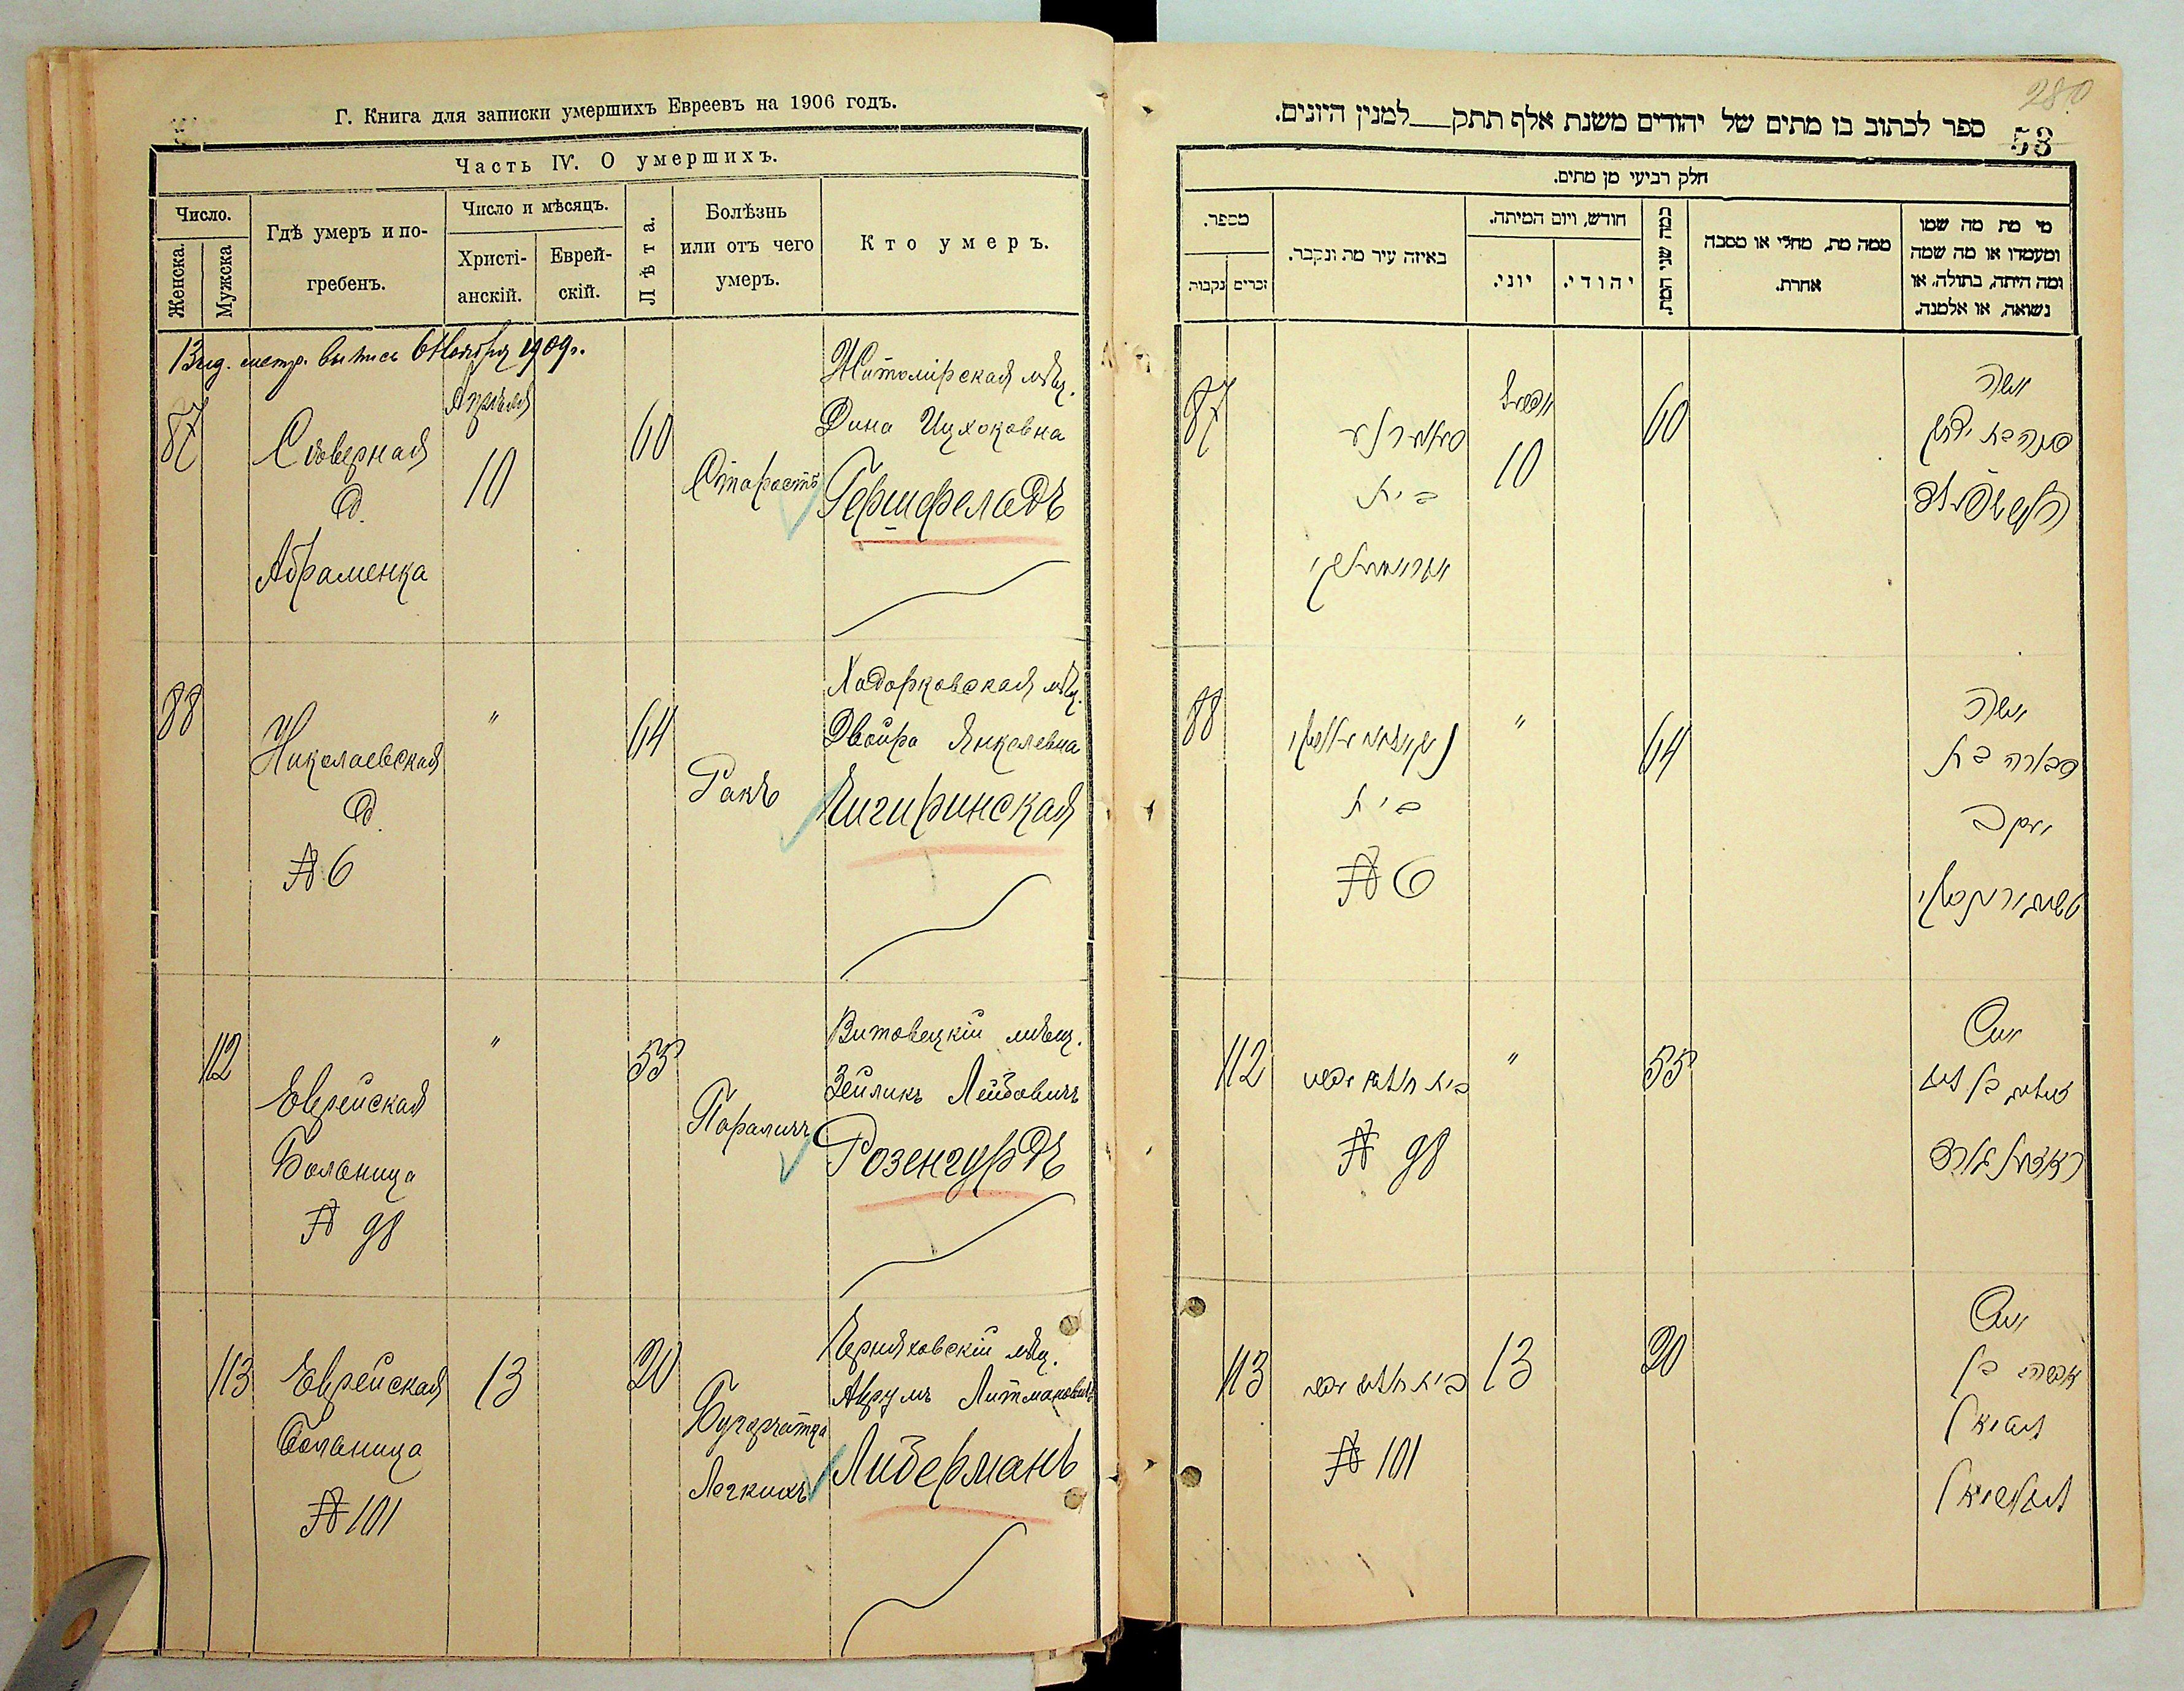 Г. Книга для записки умершихъ Евреевъ на 1906 годъ.
Часть IV. О умершихъ.
Число.
Женска.
Мужска
Гдѣ умеръ и по-
гребенъ.
Число и мѣсяцъ.
Христі-
анскій.
Еврей-
скій.
Лѣта.
Болѣзнь
или отъ чего
умеръ.
Кто умеръ.
Выд. метр. выпись 6 Ноября 1909 г.
87
Сѣверная
д.
Абраменка
Апрѣля
10
60
Старость
Житомірская мѣщ.
Дина Ицхоковна
Гершфельдъ
88
Николаевская
д.
№ 6
"
64
Ракъ
Ходорковская мѣщ.
Двойра Янкелевна
Чигиринская
112
Еврейская
Больница
№ 98
"
55
Параличъ
мѣщ.
Зейликъ Лейбовичъ
Розенгурдъ
113
Еврейская
Больница
№ 101
13
20
Бугорчатка
Легкихъ
Черняховскій мѣщ.
Аврумъ Литмановичъ
Либерманъ
280
53
ספר לכתוב בו מתים של יהודים משנת אלף תתק__למנין היונים.
חלק רביעי מן מתים.
מספר.
נקבות
זכרים
באיזה עיר מת ונקבר.
חודש, ויום המיתה.
יוני.
יהודי.
כמה שני המת.
ממה מת, מחלי או מסבה
אחרת.
מי מת מה שמו
ומעמדו או מה שמה
ומה היתה, בתולה, או
נשואה, או אלמנה.
87
בית
10
60
אשה
88
בית
№ 6
"
64
אשה
דבורה בת
יעקב
112
№ 98
"
55
איש
113
№ 101
13
20
איש
ליבערמאן